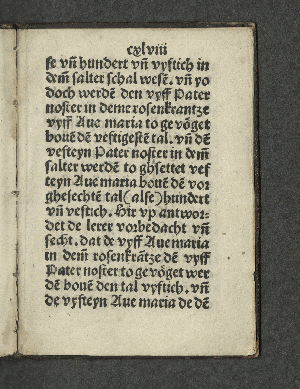 cxlviii
se vn̄ hundert vn̄ vyftich in
dem̄ salter schal wesē. vn̄ yo
doch werdē den vyff Pater
noster in deme rosenkrantze
vyff Aue maria to ge vöget
bouē dē vestigestē tal. vn̄ dē
vefteyn Pater noster in dem̄
salter werdē to ghsettet vef
teyn Aue maria bouē dē vor
ghesechtē tal (alse) hundert
vn̄ veftich. Hir vp antwor-
det de lerer vorbedacht vn̄
secht. dat de vyff Aue maria
in dem̄ rosenkrātze dē vyff
Pater noster to ge vöget wer
dē bouen den tal vyftich. vn̄
de vyfteyn Aue maria de dē